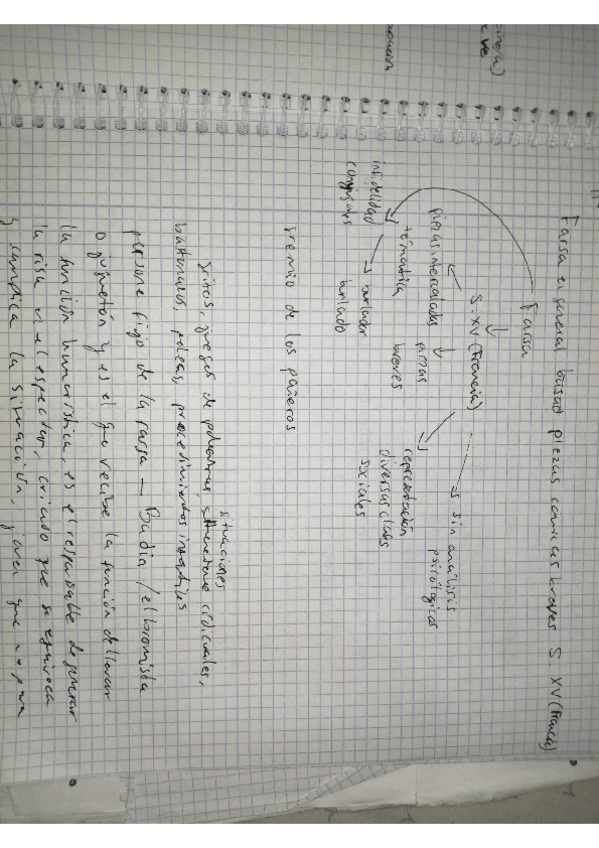 Farsa en general basad piezas cómicas breves S. XV (Francia)
Farsa
S. XV (Francia)
piezas intercaladas
piezas breves
sin análisis psicológicos
temática
representación diversas clases sociales
infidelidad conyugales
burlador burlado
Gremio de los pañeros
situaciones
Gritos, juegos de palabras, ridículas,
bastonazos, peleas, procedimientos infantiles
persone fijo de la farsa → Badin / el bromista
o juguetón y es el que recibe la función de llevar
la función humorística, es el responsable de generar
la risa en el espectador, criado que se equivoca
y complica la situación, joven que no para